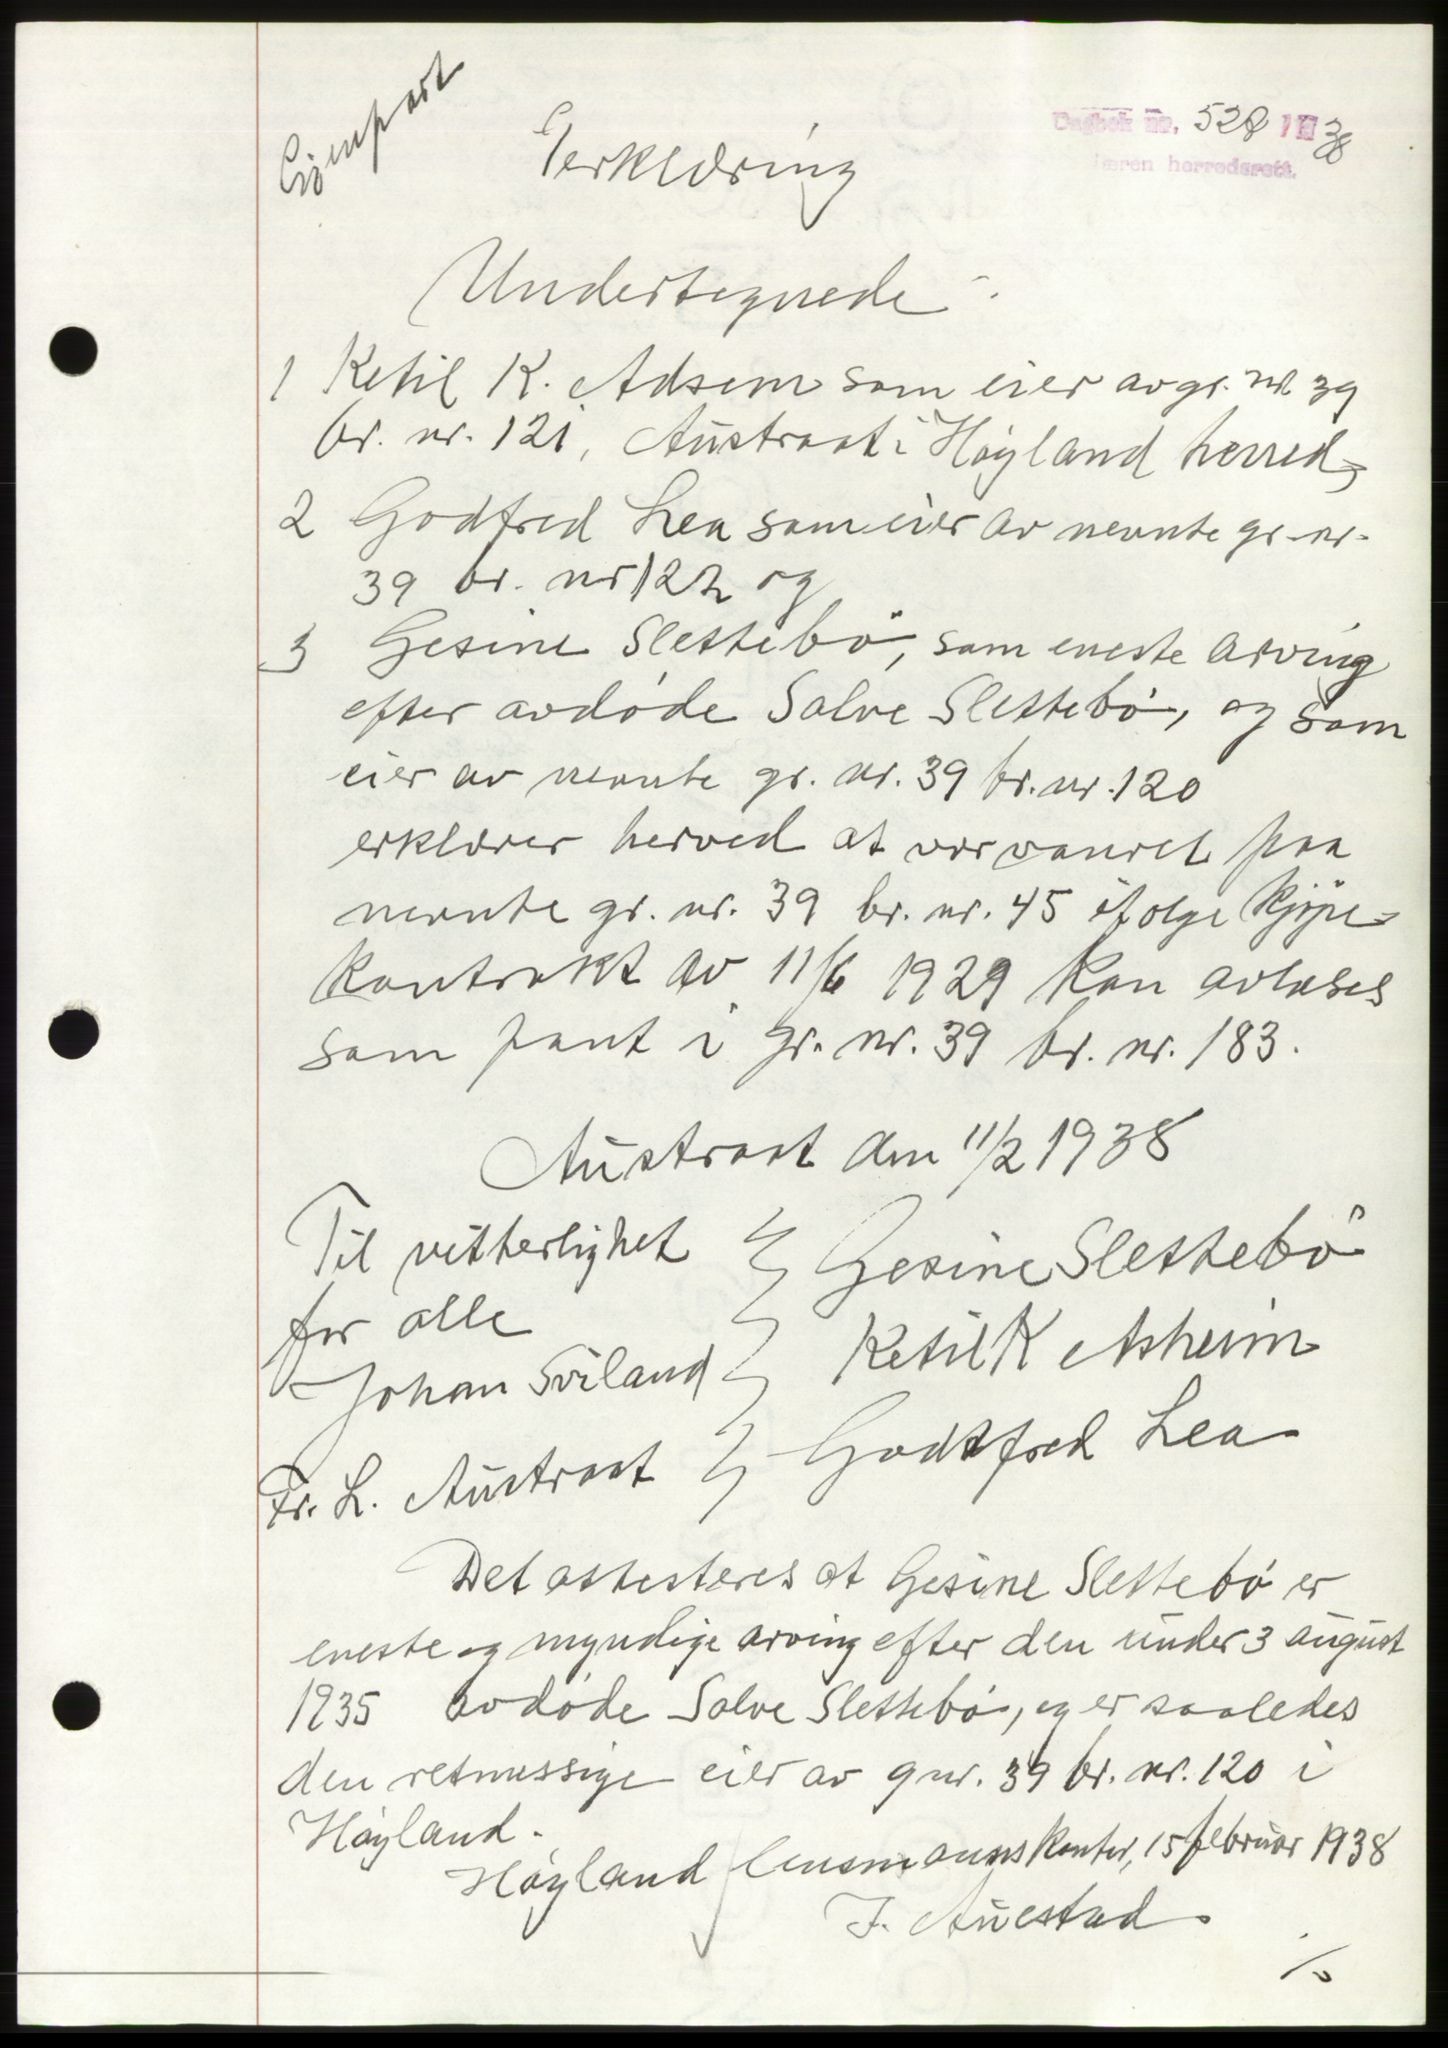 Gjenpart
Dagbok nr. 528 1938
Jæren herredsrett.
Erklæring
Undertegnede:
1 Ketil K. Adsem som eier av gr. nr 39
br. nr. 121, Austraat i Høyland herred,
2 Godfred Lea som eier av nevnte gr. nr.
39 br. nr 122 og
3 Gesine Slettebö, som eneste arving
efter avdøde Salve Slettebø, og som
eier av nevnte gr. nr. 39 br. nr. 120
erklærer herved at vor vanret paa
nevnte gr. nr. 39 br. nr. 45 ifølge Kjøpe-
kontrakt av 11/6 1929 kan avløses
som pant i gr. nr. 39 br. nr. 183.
Austraat den 11/2 1938
Til vitterlighet
for alle
Johan Sviland
Fr. L. Austraat
Gesine Slettebö
Ketil K Asheim
Godtfred Lea
Det attesteres at Gesine Slettebø er
eneste og myndige arving efter den under 3 august
1935 avdøde Salve Slettebø, og er saaledes
den retmessige eier av gnr. 39 br. nr. 120 i
Høyland.
Høyland lensmannskontor, 15 februar 1938
J. Auestad